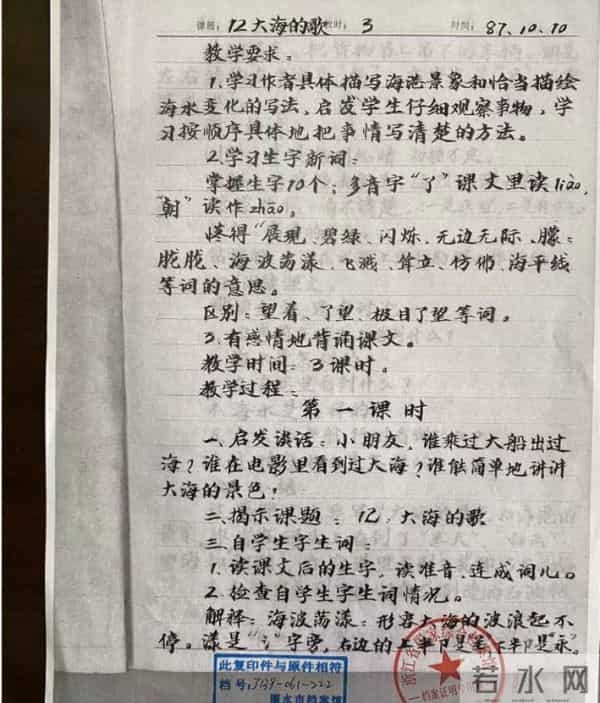 课题：12 大海的歌 课时：3 时间：87.10.10
教学要求：
1.学习作者具体描写海港景象和恰当描绘
海水变化的写法，启发学生仔细观察事物，学
习按顺序具体地把事情写清楚的方法。
2.学习生字新词：
掌握生字10个；多音字“了”课文里读liào，
“朝”读作zhāo。
懂得“展现、碧绿、闪烁、无边无际、朦朦
胧胧、海波荡漾、飞溅、耸立、仿佛、海平线
等词的意思。
区别：望着、了望、极目了望等词。
3.有感情地背诵课文。
教学时间：3课时。
教学过程：
第一课时
一、启发谈话：小朋友，谁乘过大船出过
海？谁在电影里看到过大海？谁能简单地讲讲
大海的景色！
二、揭示课题：12、大海的歌
三、自学生字生词：
1.读课文后的生字，读准音，连成词儿。
2.检查自学生字生词情况。
解释：海波荡漾：形容大海的波浪起不
停。漾是“氵”字旁，右边的上半部是“羊”下半部是“永”。
此复印件与原件相符
档号：J139-061-222
丽水市档案馆
浙江省
档案证明专用章
若水网